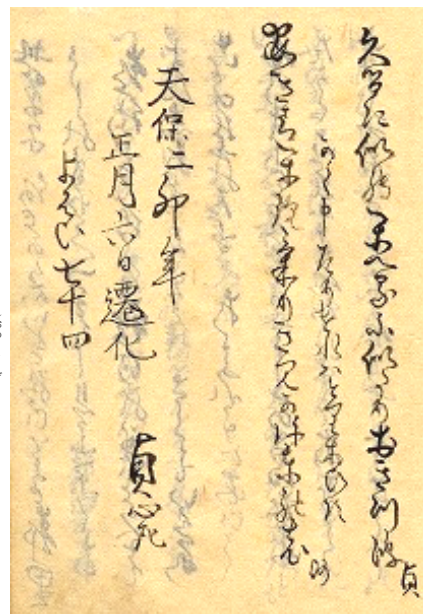 くるに似てかへるに似たりおきつ波 貞
かく申たりけれはとりあへす
あきらかりけりきみかことのは 師
天保二卯年
正月六日遷化
よはひ七十四
貞心尼